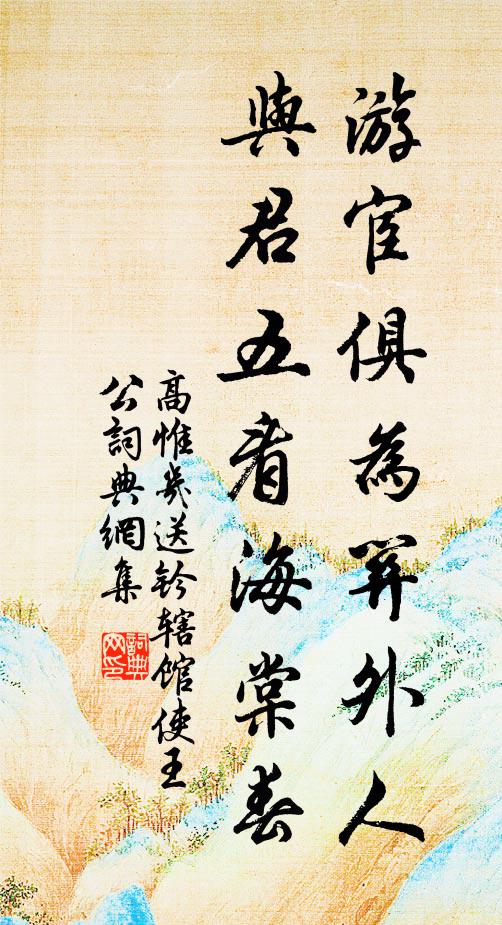 游宦俱為羿外人
與君五看海棠春
高惟幾送鈐轄館使王
公詞典網集
詞典
网印